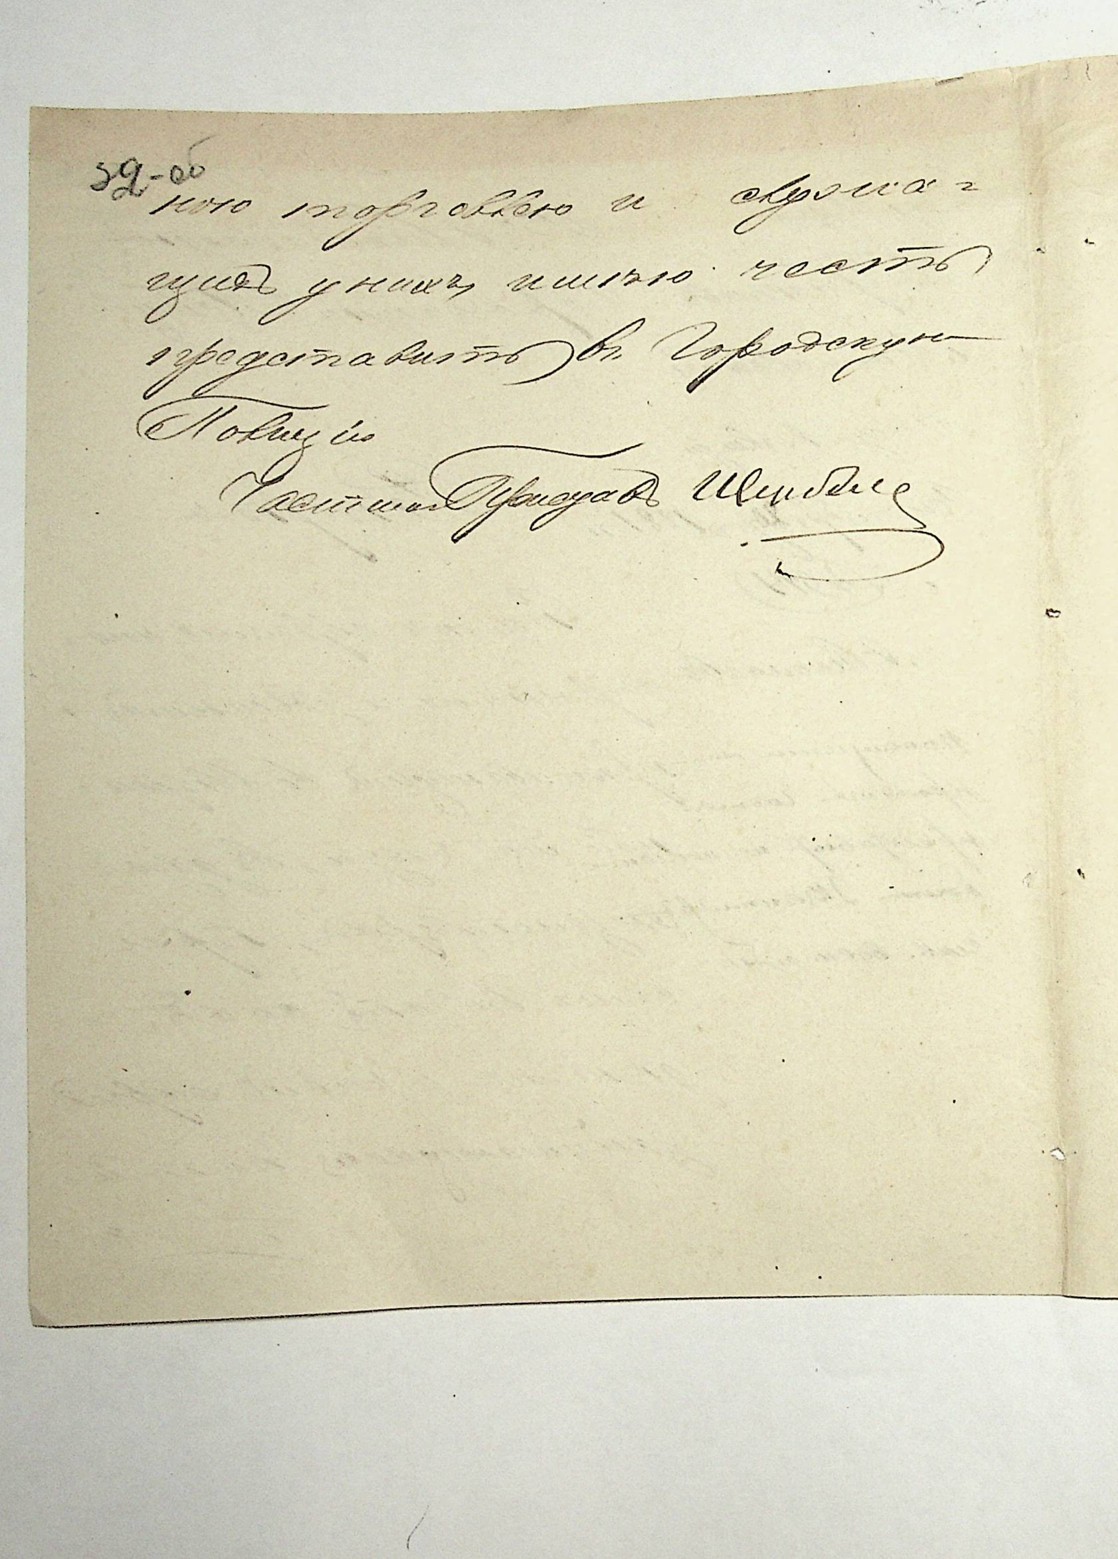 32-об
ною торговлею и служа=
щихъ у нихъ, имѣю честь
представить въ Городскую
Полицію
Частный Приставъ